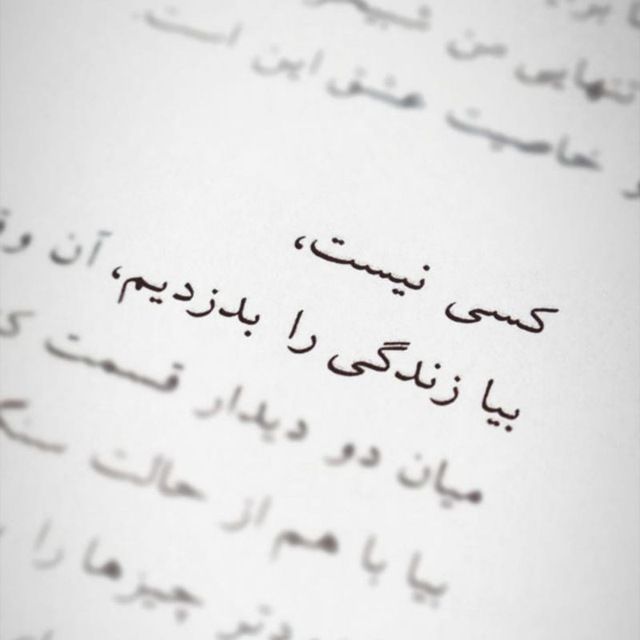 تنهایی من
و خاصیت عشق این است.
کسی نیست،
بیا زندگی را بدزدیم، آن
میان دو دیدار قسمت
بیا با هم از حالت
چیزها را